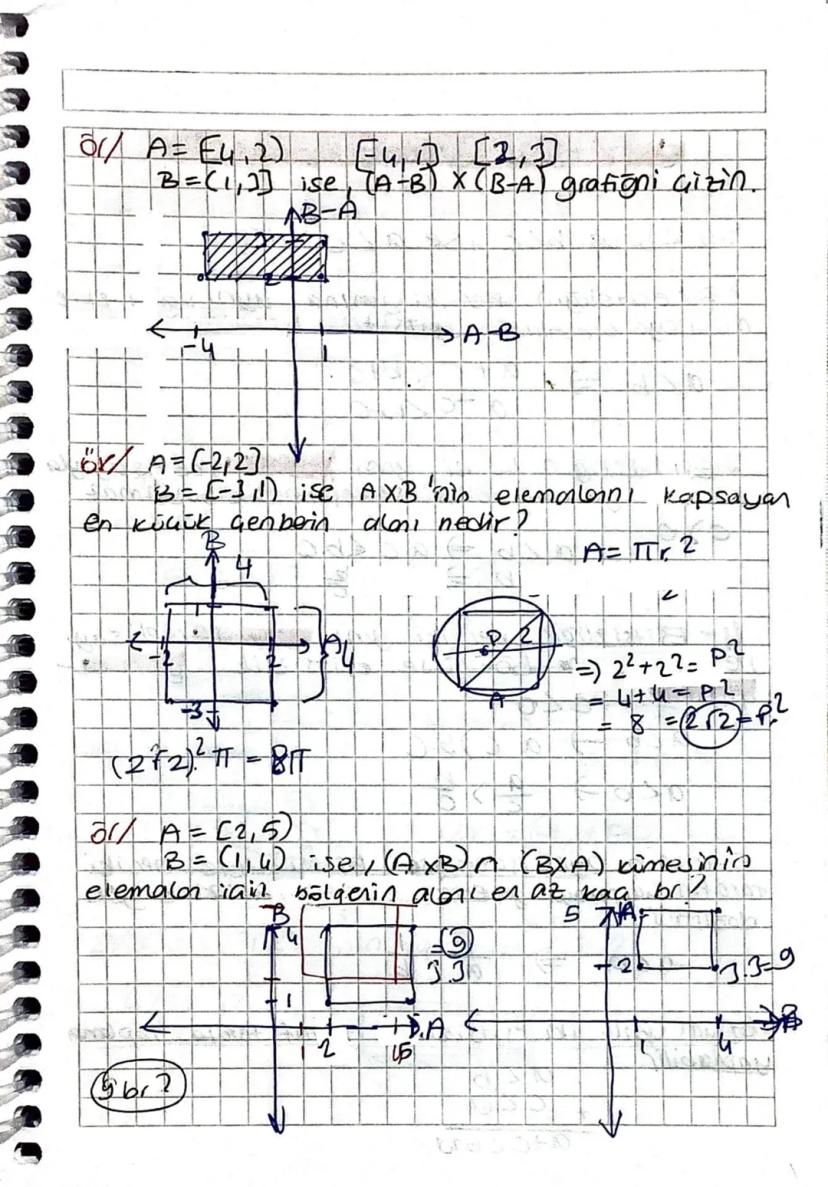 ör/ A = [-4, 2) [-4, 1] [2, 3]
B = (1, 3] ise, (A-B) x (B-A) grafiğni çizin.
B-A
3
2
A-B
-4 1
ör/ A = [-2, 2]
B = [-3, 1) ise AxB'nin elemanlarını kapsayan
en küçük çenberin alanı nedir?
A = πr²
B
4
1
A
4
-2 2
-3
P 2
A
=) 2² + 2² = P²
= 4 + 4 = P²
= 8 = 2√2 = P²
(2√2)² π = 8π
ör/ A = [2, 5)
B = (1, 4) ise, (AxB) ∩ (BxA) kümesinin
elemaları için bölgenin alanı en az kaç br?
B
4
= 9
3.3
1
A
1 2 4 5
5 A
2
3.3=9
B
1 4
br²